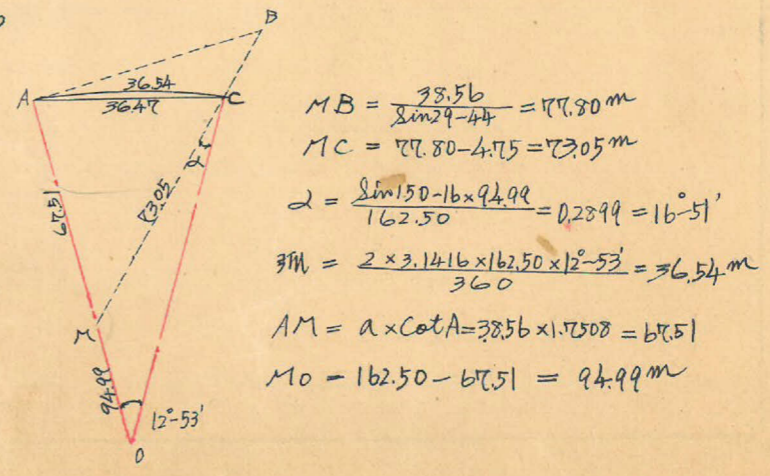 B
A
36.54
36.47
C
α
73.05
67.51
M
94.99
12°-53'
O
MB = 38.56 / Sin29-44 = 77.80 m
MC = 77.80-4.75=73.05 m
α = Sin150-16×94.99 / 162.50 = 0.2899 = 16°-51'
= 2 × 3.1416 × 162.50 × 12°-53' / 360 = 36.54 m
AM = a × CotA=38.56 × 1.7508 = 67.51
MO = 162.50 - 67.51 = 94.99 m